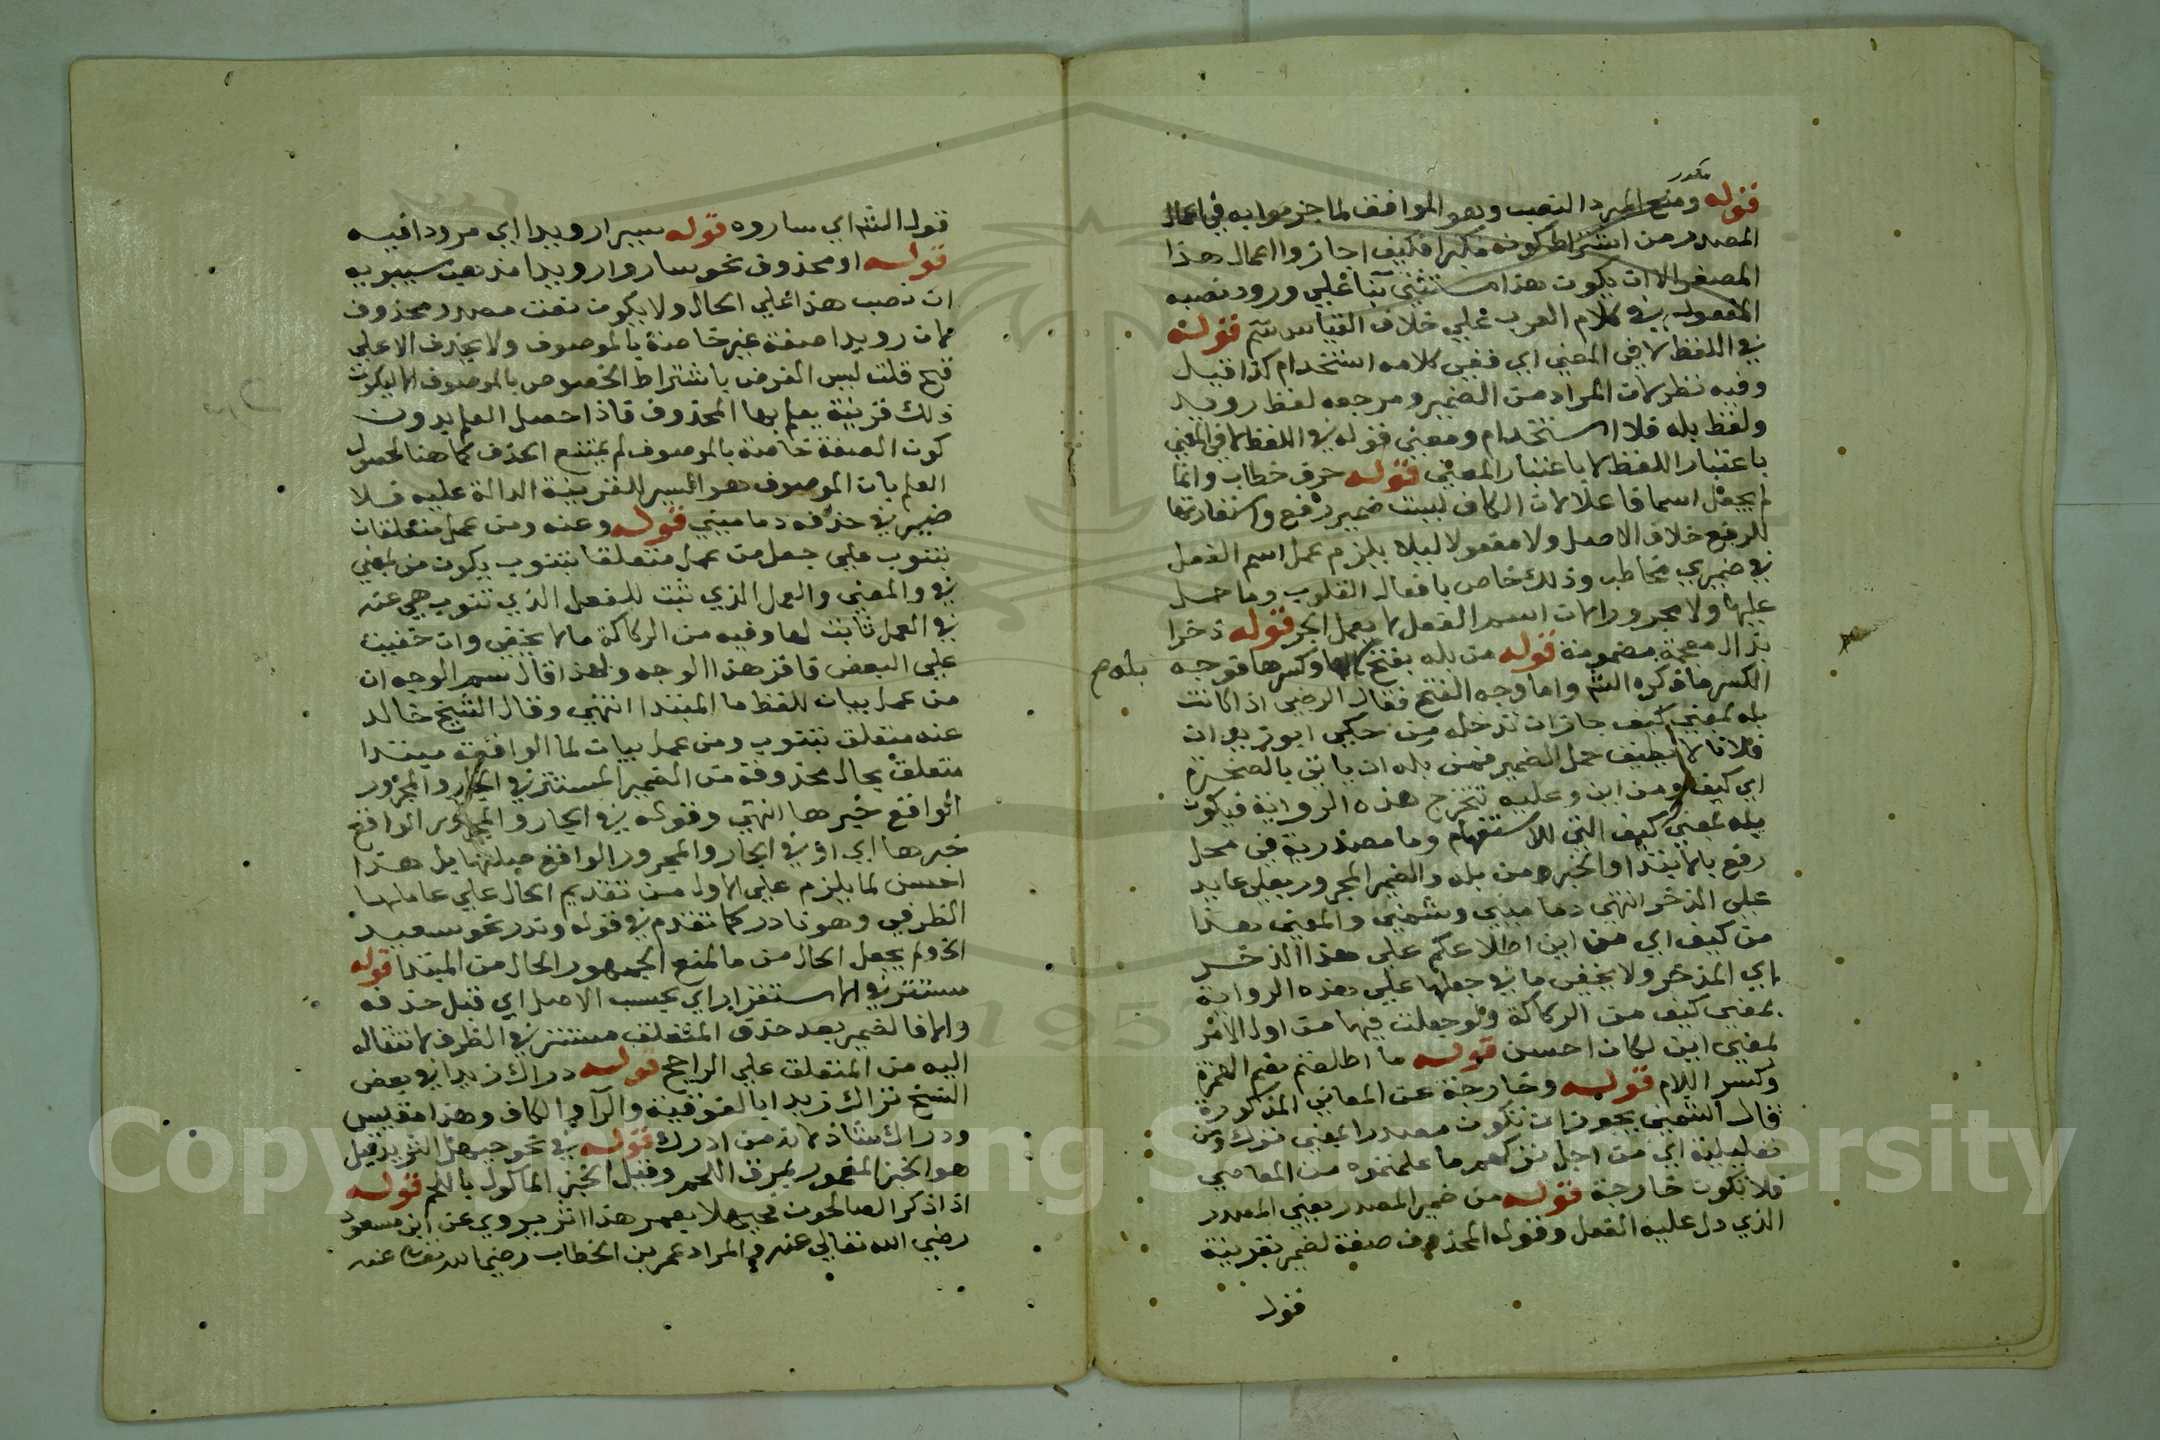 مكرر
قوله ومنع المبرد النصب وهو الموافق لما جزموا به في اعمال
المصدر من اشتراط كونه مكبرا فكيف اجازوا اعمال هذا
المصغر الا ان يكون هذا مستثنى بناء على ورود نصبه
المفعول في كلام العرب على خلاف القياس سم قوله
في اللفظ لا في المعنى اي ففي كلامه استخدام كذا قيل
وفيه نظر لان المراد من الضمير ومرجعه لفظ رويد
ولفظ بله فلا استخدام ومعنى قوله في اللفظ لا في المعنى
باعتبار اللفظ لا باعتبار المعنى قوله حرف خطاب وانما
لم يجعل اسما فاعلا لان الكاف ليست ضمير رفع واستعارتها
للرفع خلاف الاصل ولا مفعولا ليلا يلزم عمل اسم الفعل
في ضميري مخاطب وذلك خاص بافعال القلوب وما حمل
عليها ولا مجرورا لان اسم الفعل لا يعمل الجر قوله ذخرا
بذال معجمة مضمومة قوله من بله بفتح وكسرها فوجه
بله م
الكسر ما ذكره الشم واما وجه الفتح فقال الرضي اذا كانت
بله بمعنى كيف جاز ان تدخله من حكى ابو زيد ان
فلانا لا يطيق حمل الفهر فمن بله ان ياتي بالصخرة
اي كيف ومن اين وعليه تتخرج هذه الرواية فيكون
بله بمعنى كيف التي للاستفهام وما مصدرية في محل
رفع بالابتدا والخبر من بله والضمير المجرور بعلى عايد
على الذخر انتهى دماميني وشمني والمعنى هذا
من كيف اي من اين اطلاعكم على هذا الذخر
اي المذخر ولا يخفى ما في جعلها على هذه الرواية
بمعنى كيف من الركاكة ولو جعلت فيها من اول الامر
بمعنى اين لكان احسن قوله ما اطلعتم بضم الهمزة
وكسر اللام قوله وخارجة عن المعاني المذكورة
قال الشمني يجوز ان تكون مصدرا بمعنى ترك ومن
تعليلية اي من اجل تركهم ما علمتموه من المعاصي
فلا تكون خارجة قوله من ضمير المصدر يعني المصدر
الذي دل عليه الفعل وقوله المحذوف صفة لضمير بقرينة
قول
قول الشم اي ساروه قوله سيرا رويدا اي مرودا فيه
قوله او محذوف نحو ساروا رويدا مذهب سيبويه
ان نصب هذا على الحال ولا يكون نعت مصدر محذوف
لان رويدا صفة غير خاصة بالموصوف ولا يحذف الا على
قبح قلت ليس الغرض باشتراط الخصوص بالموصوف الا ليكون
ذلك قرينة يعلم بها المحذوف فاذا حصل العلم بدون
كون الصفة خاصة بالموصوف لم يمتنع الحذف كما هنا لحصول
العلم بان الموصوف هو السير للقرينة الدالة عليه فلا
ضير في حذفه دماميني قوله وعنه ومن عمل متعلقات
بتنوب على جعل من عمل متعلقا بتنوب يكون من بمعنى
في والمعنى والعمل الذي ثبت للفعل الذي تنوب هي عنه
في العمل ثابت لها وفيه من الركاكة ما لا يخفى وان خفيت
على البعض فاقر هذا الوجه ولهذا قال سم الوجه ان
من عمل بيان للفظ ما المبتدا انتهى وقال الشيخ خالد
عنه متعلق بتنوب ومن عمل بيان لما الواقعة مبتدا
متعلق بحال محذوفة من الضمير المستتر في الجار والمجرور
الواقع خبرها انتهى وقوله في الجار والمجرور الواقع
خبرها اي او في الجار والمجرور الواقع صلتها بل هذا
احسن لما يلزم على الاول من تقديم الحال على عاملها
الظرفي وهو نادر كما تقدم في قوله وندر نحو سعيد
الخ ولم يجعل الحال من ما لمنع الجمهور الحال من المبتدا قوله
مستتر في الاستقرار اي بحسب الاصل اي قبل حذفه
والا فالضمير بعد حذف المتعلق مستتر في الظرف لانتقاله
اليه من المتعلق على الراجح قوله دراك زيدا في بعض
النسخ تراك زيدا بالفوقية والراء والكاف وهذا مقيس
ودراك شاذ لانه من ادرك قوله في نحو حيهل الثريد قيل
هو الخبز المغمور بمرق اللحم وقيل الخبز الماكول باللحم قوله
اذا ذكر الصالحون فحيهلا بعمر هذا اثر يروى عن ابن مسعود
رضي الله تعالى عنه والمراد عمر بن الخطاب رضي الله تعالى عنه
Copyright © King Saud University
1957